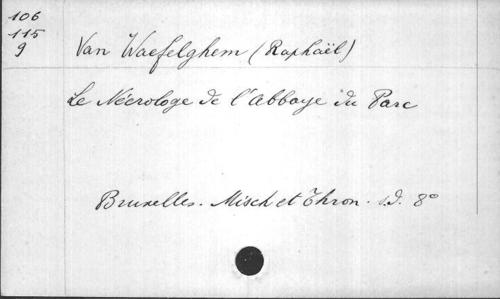 106
115
9
Van Waefelghem (Raphaël)
Le Nécrologe de l'Abbaye du Parc
Bruxelles. Misch et Thron. s.d. 8°